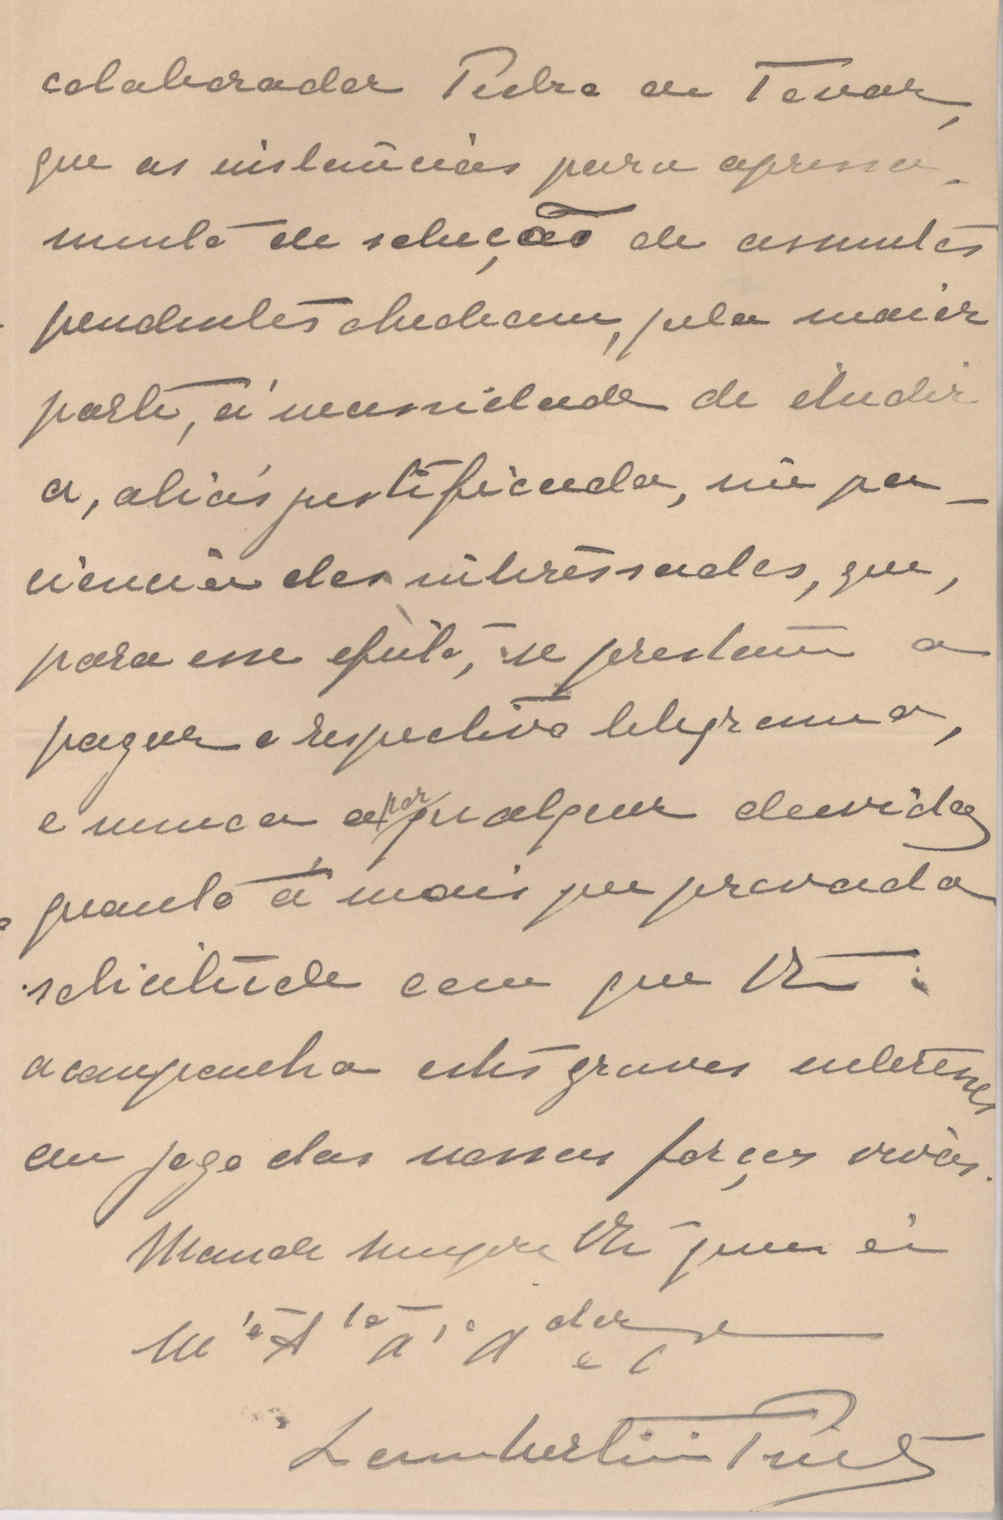 colaborador Pedro de Tovar,
que as instancias para apressa-
mento de solução de assumtos
pendentes obedecem, pela maior
parte, á necessidade de iludir
a, aliás justificada, im pa-
ciencia dos interessados, que,
para esse efeito, se prestam a
pagar o respectivo telegrama,
e nunca a por qualquer duvida
quanto á mais que provada
solicitude com que V.
acompanha estes graves interesses
em jogo das nossas forças vivas.
Mande sempre V. quem é
M A a A dor e
Lambertini Pinto